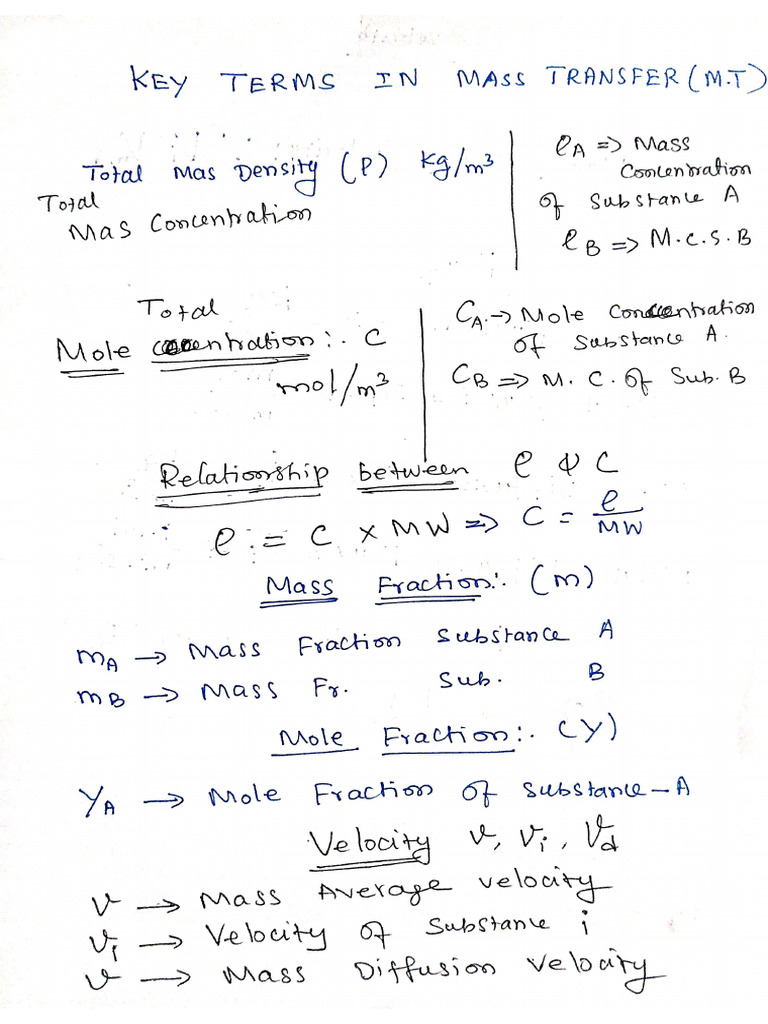 KEY TERMS IN MASS TRANSFER (M.T)
Total Mas Density (P) Kg/m³
Total
Mas Concentration
ρA => Mass
Concentration
of Substance A
ρB => M.C.S.B
Total
Mole concentration:. C
mol/m³
CA -> Mole Concentration
of Substance A.
CB => M. C. of Sub. B
Relationship between ρ & C
ρ := C x MW => C = ρ/MW
Mass Fraction:. (m)
mA -> Mass Fraction Substance A
mB -> Mass Fr. Sub. B
Mole Fraction:. (Y)
YA -> Mole Fraction of Substance-A
Velocity v, vi, vd
v -> Mass Average velocity
vi -> Velocity of Substance i
v -> Mass Diffusion Velocity